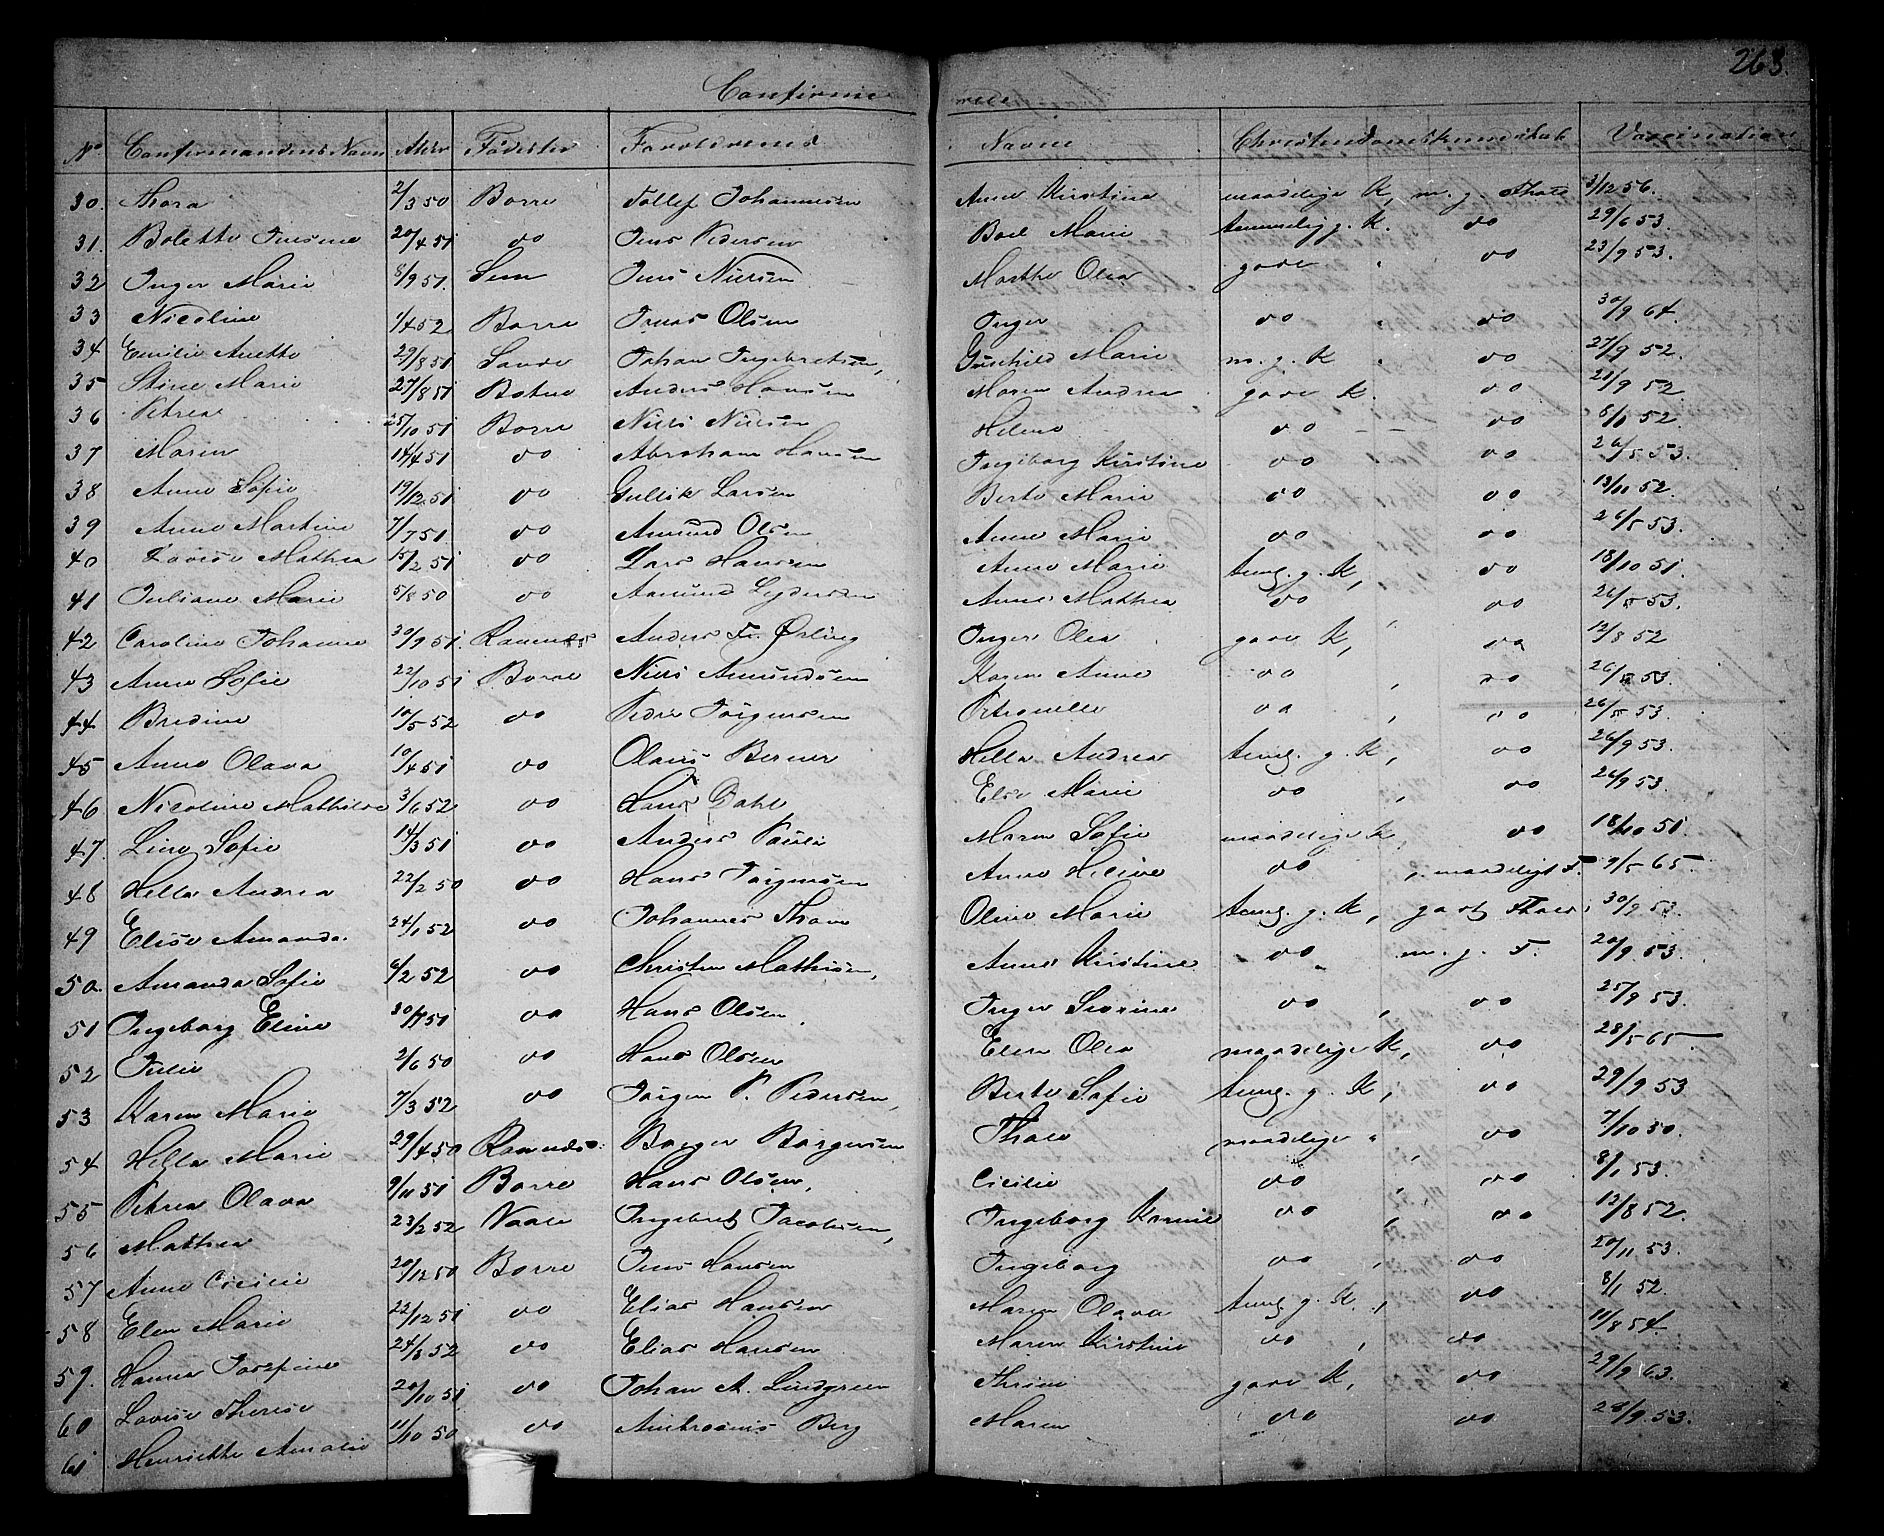 268.
Confirmerede
No Confirmandens Navn Alder Fødested Forældrenes Navne Christendomskundskab Vaccination
30. Thora 2/3 50 Borre Tollef Johannesen Anne Kirstine maadelige K, m. g. Flid 3/12 56.
31. Bolette Jensine 20/4 51 do Jens Pedersen Boel Marie temmelig g. K. do 29/6 53.
32 Inger Marie 8/9 51. Sem Jens Nielsen Marthe Olea gode do 23/9 53.
33 Nicoline 1/4 52 Borre Jonas Olsen Inger do do 30/9 64.
34 Emilie Anette 29/8 51 Sande Johan Ingebretsen, Gunhild Marie m. g. K do 27/9 52.
35 Stine Marie 27/8 51 Botne Anders Hansen Maren Andrea gode K. do 21/9 52.
36 Petrea 25/10 51 Borre Niels Nielsen Helene do do 52.
37 Maren 14/4 51 do Abraham Hansen Ingeborg Kirstine do do 26/5 53.
38 Anne Sofie 19/12 51 do Gullik Larsen Berte Marie do do 13/11 52.
39 Anne Martine 7/7 51 do Amund Olsen Anne Marie do do 26/5 53.
40 Lovise Mathea 15/2 51 do Lars Hansen Anne Marie teml. g. K, do 18/10 51.
41 Juliane Marie 5/8 50 do Amund Lydersen Anne Mathea do do 26/5 53.
42 Caroline Johanne 30/9 51. Ramnæs Anders Fr. Ørling Inger Olea gode K, do 12/8 52
43 Anne Sofie 22/10 51 Borre Niels Amundsen Karen Anne do do 26/5 53.
44 Bredine 10/5 52 do Peder Jørgensen Petronelle do do 26/5 53.
45 Anne Olava 10/4 51 do Olaus Berner Hella Andrea teml. g. K, do 26/9 53.
46 Nicoline Mathilde 3/6 52 do Hans Dahl Else Marie do do 26/9 53.
47. Line Sofie 14/3 51 do Anders Maren Sofie maadelige K, do 18/10 51.
48 Hella Andrea 22/2 50 do Hans Jørgensen Anne Helene do maadeligt F. 9/5 65
49 Elise Amanda. 24/1 52 do Johannes Oline Marie teml. g. K, godt 30/9 53.
50. Amanda Sofie 6/2 52 do Christen Mathisen, Anne Kirstine do m. g. F. 20/9 53.
51 Ingeborg Eline 51 do Hans Olsen, Inger Severine do do 25/9 53.
52 Julie 2/6 50 do Hans Olsen Elen Olea maadelige K, do 28/5 65
53 Karen Marie 7/3 52 do Jørgen P. Pedersen, Berte Sofie teml. g. K, do 29/9 53
54 Hella Marie 29/4 50 Ramnæs. Børger Børgersen Thale maadelige " do 7/10 50.
55 Petrea Olava 9/11 51 Borre Hans Olsen, Cicilie do do 8/1 53.
56 Mathea 23/2 52 Vaale Ingebret Jacobsen, Ingeborg Karine do do 12/8 52.
57 Anne Cicilie 20/12 50 Borre Jens Hansen Ingeborg do do 20/11 53.
58 Elen Marie 22/12 51 do Elias Hansen Maren Olava teml. g. K., do 8/1 52.
59. Hanna Josefine 24/6 52 do Elias Hansen Maren Kirstine do do 11/8 54.
60 Lovise Therese 20/10 51 do Johan A. Lindgreen Thrine gode K, do 29/9 63.
61 Henriette Amalie 11/10 50 do Ambrosius Berg Maren do do 28/9 53.